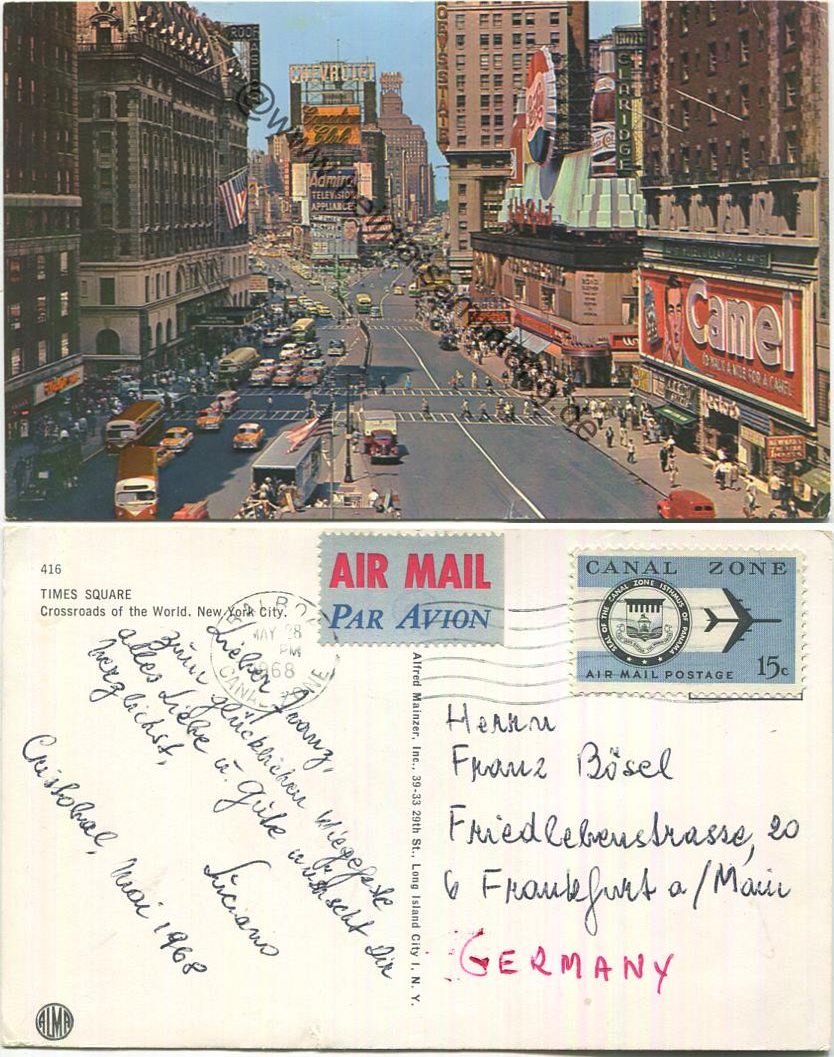 ROOF
CHEVROLET
Admiral
TELEVISION
APPLIANCES
Pepsi
CLARIDGE
Camel
I'D WALK A MILE FOR A CAMEL
416
TIMES SQUARE
Crossroads of the World. New York City.
AIR MAIL
PAR AVION
BALBOA
MAY 28
PM
1968
CANAL ZONE
CANAL ZONE
SEAL OF THE CANAL ZONE ISTHMUS OF PANAMA
AIR MAIL POSTAGE 15c
Lieber Franz,
zum glücklichen Wiegefeste
alles Liebe u. Gute wünscht Dir
herzlichst,
Luciano
Cristobal, Mai 1968
Alfred Mainzer, Inc., 39-33 29th St., Long Island City I, N. Y.
Herrn
Franz Bösel
Friedlebenstrasse, 20
6 Frankfurt a/Main
GERMANY
ALMA